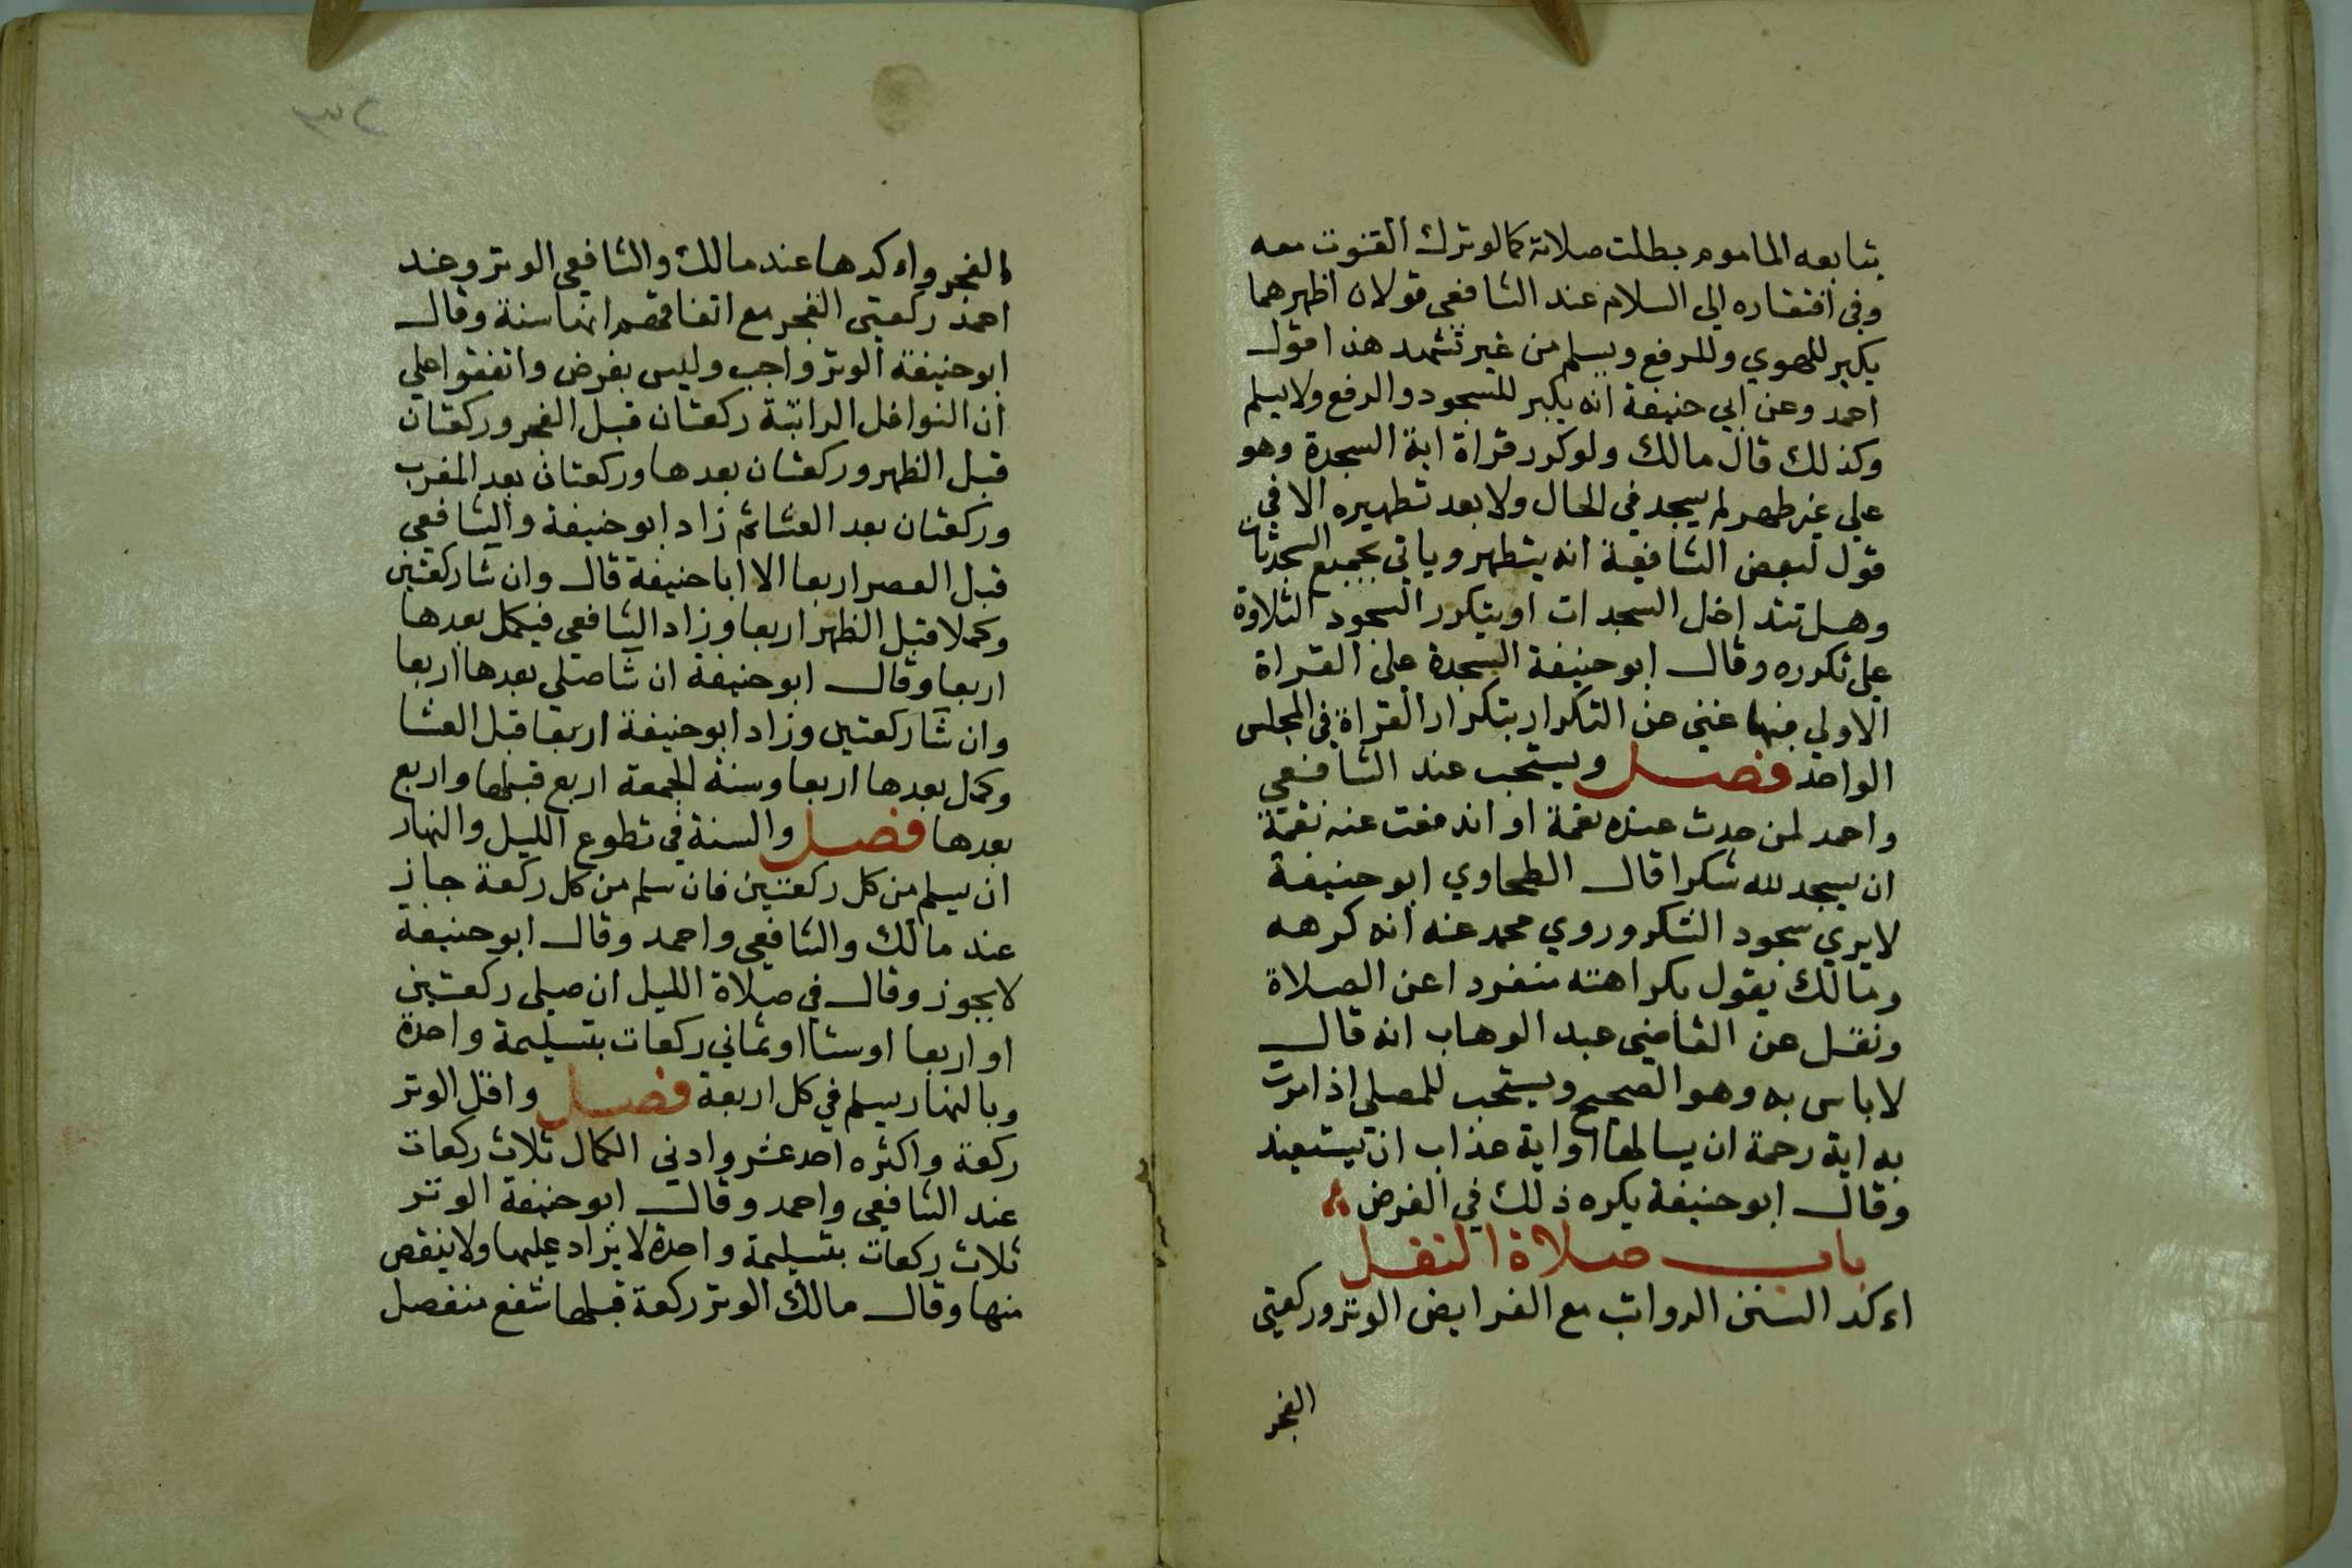 يتابعه الماموم بطلت صلاته كما لو ترك القنوت معه
وفي افتقاره الي السلام عند الشافعي قولان اظهرهما
يكبر للهوي وللرفع ويسلم من غير تشهد هذا قول
احمد وعن ابي حنيفة انه يكبر للسجود والرفع ولا يسلم
وكذلك قال مالك ولو كرر قراة اية السجدة وهو
علي غير طهر لم يسجد في الحال ولا بعد تطهيره الا في
قول لبعض الشافعية انه يتطهر وياتي بجميع السجدات
وهل تتداخل السجدات او يتكرر السجود التلاوة
علي تكرره وقال ابو حنيفة السجدة علي القراة
الاولي فيها غني عن التكرار بتكرار القراة في المجلس
الواحد فصل ويستحب عند الشافعي
واحمد لمن حدث عنده نعمة او اندفعت عنه نقمة
ان يسجد لله شكرا قال الطحاوي ابو حنيفة
لا يري سجود الشكر وروي محمد عنه انه كرهه
ومالك يقول بكراهته منفردا عن الصلاة
ونقل عن القاضي عبد الوهاب انه قال
لا باس به وهو الصحيح ويستحب للمصلي اذا مرت
به اية رحمة ان يسالها او اية عذاب ان يستعيذ
وقال ابو حنيفة يكره ذلك في الفرض
باب صلاة النفل
اءكد السنن الرواتب مع الفرايض الوتر وركعتي
الفجر
٣٢
الفجر واءكدها عند مالك والشافعي الوتر وعند
احمد ركعتي الفجر مع اتفاقهم انها سنة وقال
ابو حنيفة الوتر واجب وليس بفرض واتفقوا علي
ان النوافل الراتبة ركعتان قبل الفجر وركعتان
قبل الظهر وركعتان بعدها وركعتان بعد المغرب
وركعتان بعد العشا ثم زاد ابو حنيفة والشافعي
قبل العصر اربعا الا ابا حنيفة قال وان شا ركعتين
وكملا قبل الظهر اربعا وزاد الشافعي فيكمل بعدها
اربعا وقال ابو حنيفة ان شا صلي بعدها اربعا
وان شا ركعتين وزاد ابو حنيفة اربعا قبل العشا
وكمل بعدها اربعا وسنة الجمعة اربع قبلها واربع
بعدها فصل والسنة في تطوع الليل والنهار
ان يسلم من كل ركعتين فان سلم من كل ركعة جاز
عند مالك والشافعي واحمد وقال ابو حنيفة
لا يجوز وقال في صلاة الليل ان صلي ركعتين
او اربعا او ستا او ثماني ركعات بتسليمة واحدة
وبالنهار يسلم في كل اربعة فصل واقل الوتر
ركعة واكثره احد عشر وادني الكمال ثلاث ركعات
عند الشافعي واحمد وقال ابو حنيفة الوتر
ثلاث ركعات بتسليمة واحدة لا يزاد عليها ولا ينقص
منها وقال مالك الوتر ركعة قبلها شفع منفصل